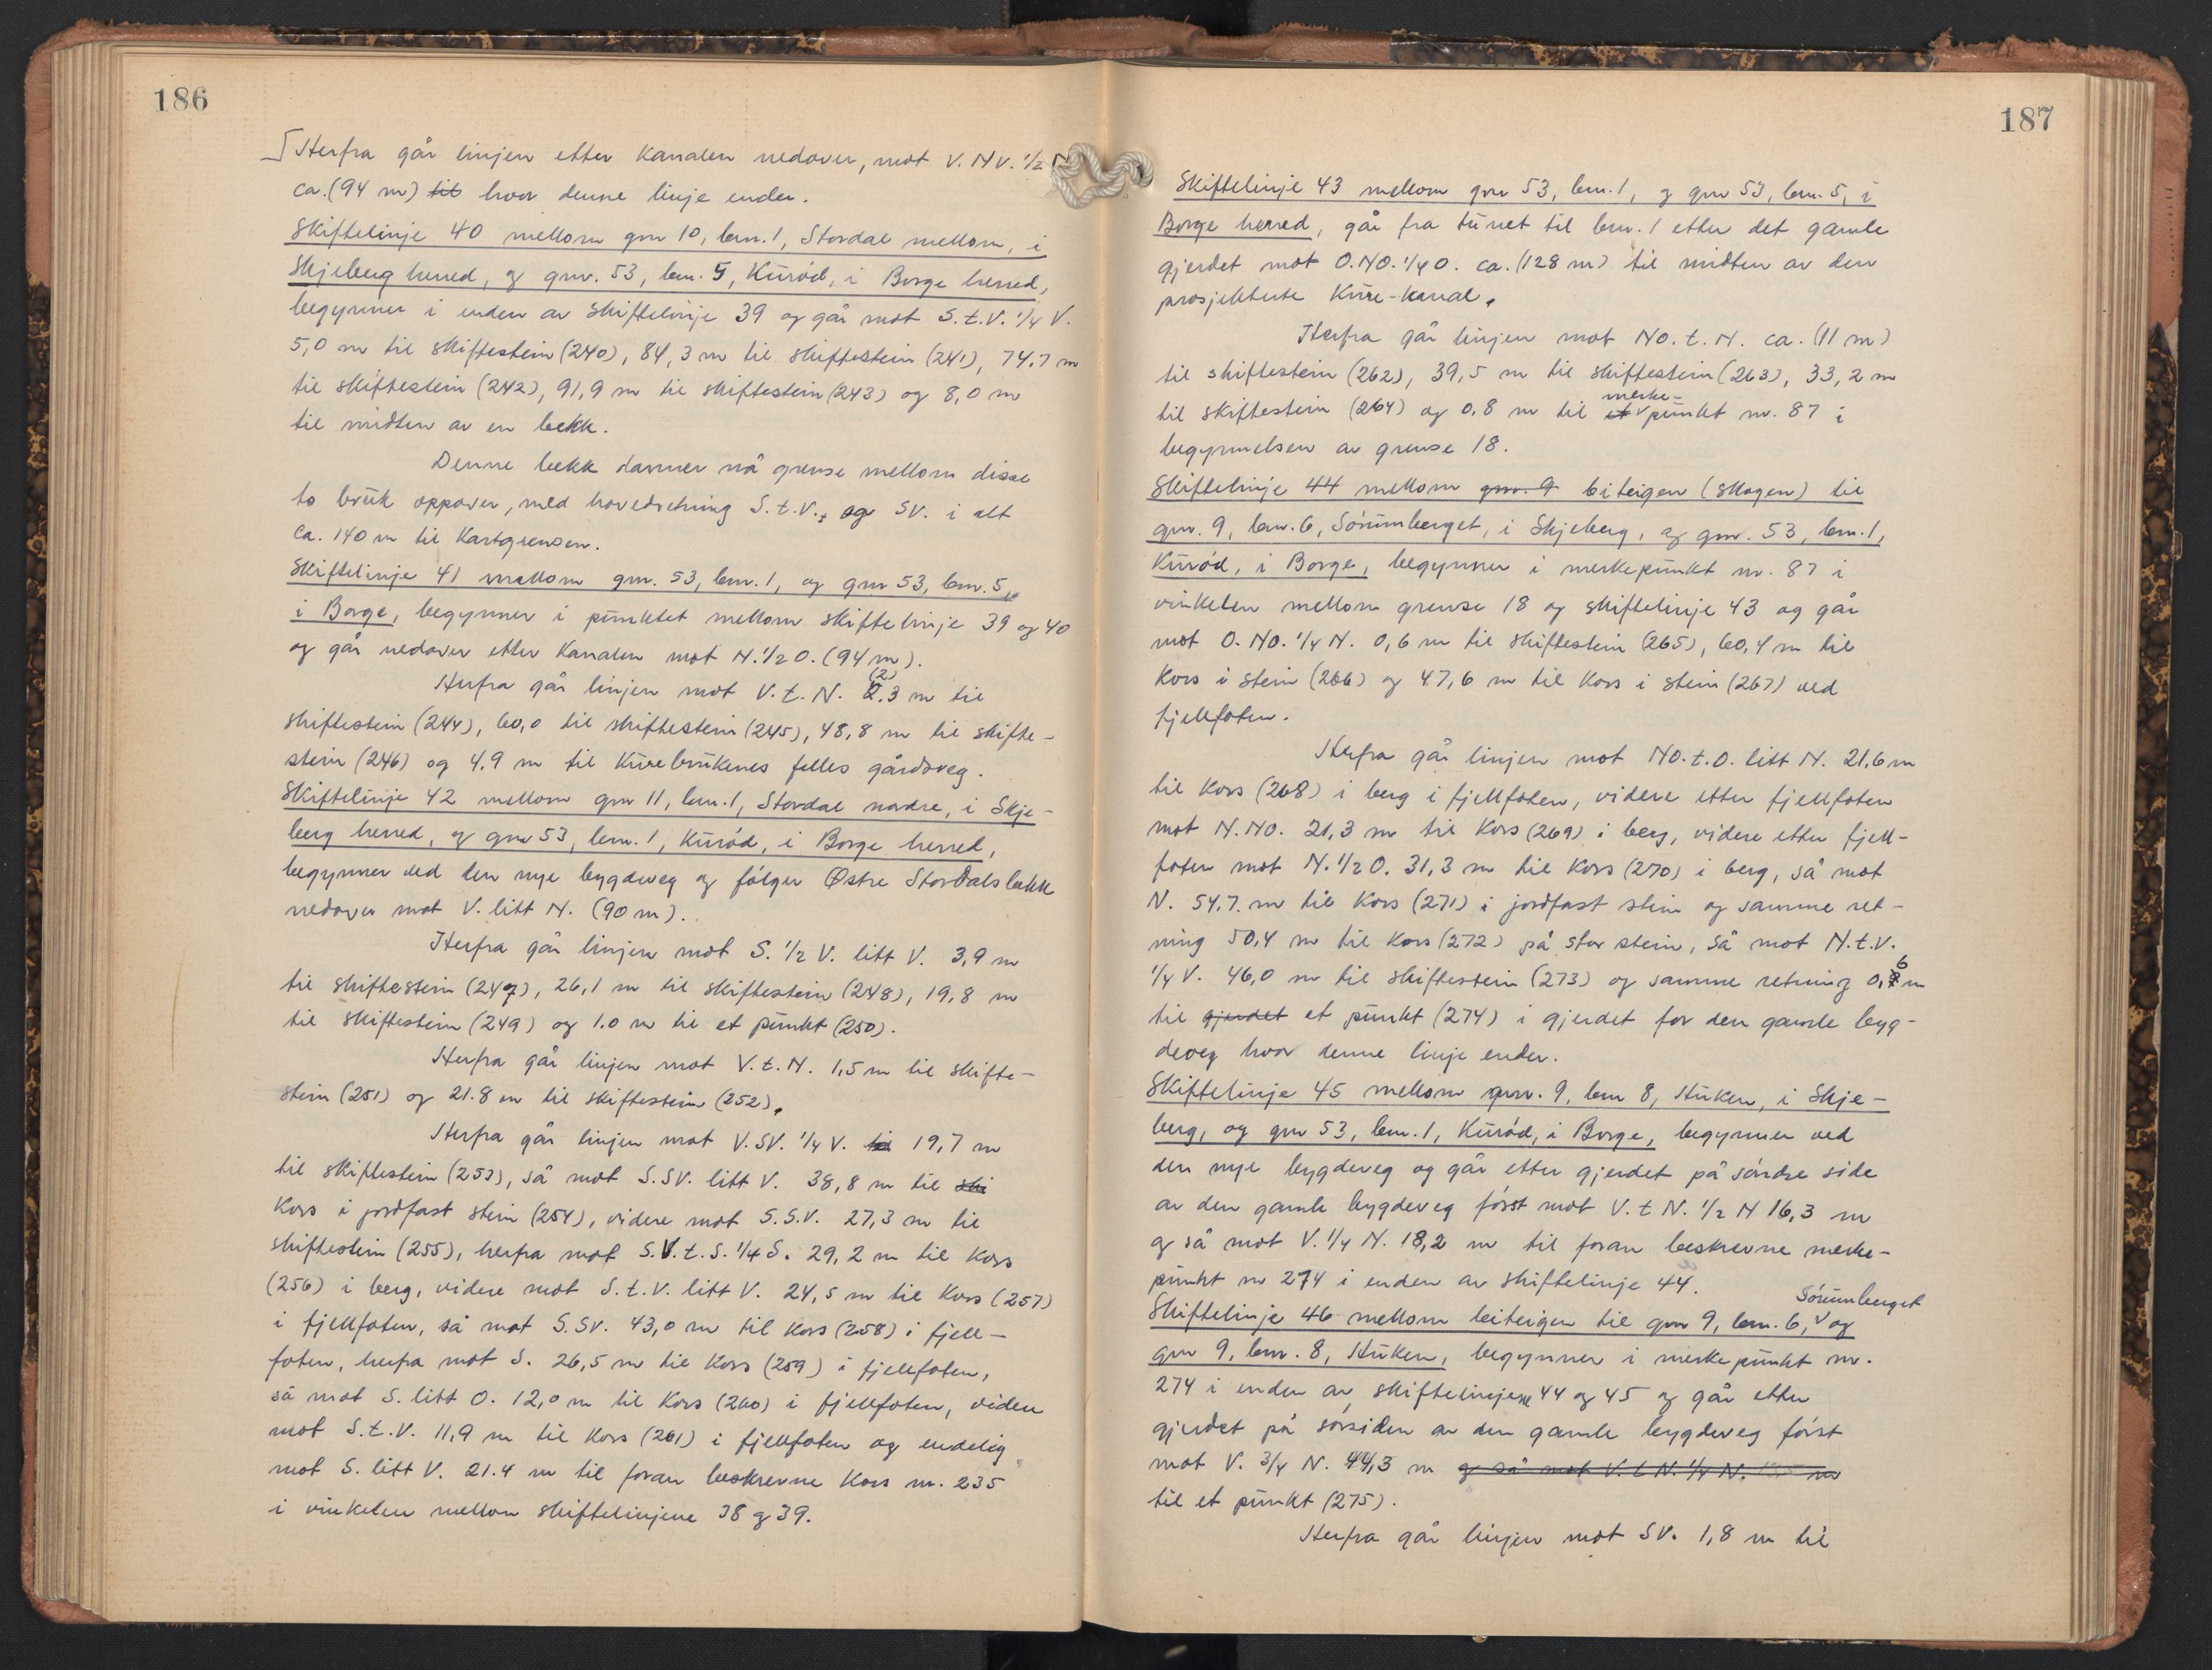 186
Herfra går linjen etter kanalen nedover, mot V. NV. 1/2 N
ca. (94 m) til hvor denne linje ender.
Skiftelinje 40 mellom gnr 10, bnr. 1, Stordal mellom, i
Skjeberg herred, og gnr. 53, bnr. 5, Kurød, i Borge herred,
begynner i enden av skiftelinje 39 og går mot S.t.V. 1/4 V.
5,0 m til skiftestein (240), 84,3 m til skiftestein (241), 74,7 m
til skiftestein (242), 91,9 m til skiftestein (243) og 8,0 m
til midten av en bekk.
Denne bekk danner nå grense mellom disse
to bruk oppover, med hovedretning S.t.V., og SV. i alt
ca. 140 m til Kartgrensen.
Skiftelinje 41 mellom gnr. 53, bnr. 1, og gnr 53, bnr. 5,
i Borge, begynner i punktet mellom skiftelinje 39 og 40
og går nedover etter Kanalen mot N. 1/2 O. (94 m).
Herfra går linjen mot V.t.N. 2.3 (2) m til
skiftestein (244), 60,0 til skiftestein (245), 48,8 m til skifte-
stein (246) og 4.9 m til Kurebrukenes felles gårdsveg.
Skiftelinje 42 mellom gnr 11, bnr. 1, Stordal nordre, i Skje-
berg herred, og gnr 53, bnr. 1, Kurød, i Borge herred,
begynner ved den nye bygdeveg og følger Østre Stordalsbekk
nedover mot V. litt N. (90 m).
Herfra går linjen mot S. 1/2 V. litt V. 3,9 m
til skiftestein (247), 26,1 m til skiftestein (248), 19,8 m
til skiftestein (249) og 1.0 m til et punkt (250).
Herfra går linjen mot V.t.N. 1,5 m til skifte-
stein (251) og 21.8 m til skiftestein (252).
Herfra går linjen mot V.SV. 1/4 V. til 19,7 m
til skiftestein (253), så mot S.SV. litt V. 38,8 m til ski
Kors i jordfast stein (254), videre mot S.S.V. 27,3 m til
skiftestein (255), herfra mot S.V.t.S. 1/4 S. 29,2 m til Kors
(256) i berg, videre mot S.t.V. litt V. 24,5 m til Kors (257)
i fjellfoten, så mot S.SV. 43,0 m til Kors (258) i fjell-
foten, herfra mot S. 26,5 m til Kors (259) i fjellfoten,
så mot S. litt O. 12,0 m til Kors (260) i fjellfoten, videre
mot S.t.V. 11,9 m til Kors (261) i fjellfoten og endelig
mot S. litt V. 21.4 m til foran beskrevne Kors nr. 235
i vinkelen mellom skiftelinjene 38 og 39.
187
Skiftelinje 43 mellom gnr 53, bnr. 1, og gnr 53, bnr. 5, i
Borge herred, går fra tunet til bnr. 1 etter det gamle
gjerdet mot O.NO. 1/4 O. ca. (128 m) til midten av den
prosjekterte Kure-kanal.
Herfra går linjen mot NO.t.N. ca. (11 m)
til skiftestein (262), 39,5 m til skiftestein (263), 33,2 m
til skiftestein (264) og 0,8 m til et merke-punkt nr. 87 i
begynnelsen av grense 18.
Skiftelinje 44 mellom gnr. 9 biteigen (skogen) til
gnr. 9, bnr. 6, Sørumberget, i Skjeberg, og gnr. 53, bnr. 1,
Kurød, i Borge, begynner i merkepunkt nr. 87 i
vinkelen mellom grense 18 og skiftelinje 43 og går
mot O.NO. 1/4 N. 0,6 m til skiftestein (265), 60,4 m til
Kors i stein (266) og 47,6 m til Kors i stein (267) ved
fjellfoten.
Herfra går linjen mot NO.t.O. litt N. 21,6 m
til Kors (268) i berg i fjellfoten, videre etter fjellfoten
mot N.NO. 21,3 m til Kors (269) i berg, videre etter fjell-
foten mot N. 1/2 O. 31,3 m til Kors (270) i berg, så mot
N. 54,7 m til Kors (271) i jordfast stein og samme ret-
ning 50,4 m til Kors (272) på stor stein, så mot N.t.V.
1/4 V. 46,0 m til skiftestein (273) og samme retning 0,6 m
til gjerdet et punkt (274) i gjerdet for den gamle byg-
deveg hvor denne linje ender.
Skiftelinje 45 mellom gnr. 9, bnr 8, Huken, i Skje-
berg, og gnr 53, bnr. 1, Kurød, i Borge, begynner ved
den nye bygdeveg og går etter gjerdet på søndre side
av den gamle bygdeveg først mot V.t N. 1/2 N 16,3 m
og så mot V. 1/4 N. 18,2 m til foran beskrevne merke-
punkt nr 274 i enden av skiftelinje 44.
Skiftelinje 46 mellom biteigen til gnr 9, bnr. 6, Sørumberget og
gnr 9, bnr. 8, Huken, begynner i merkepunkt nr.
274 i enden av skiftelinjene 44 og 45 og går etter
gjerdet på sørsiden av den gamle bygdeveg først
mot V. 3/4 N. 44,3 m og så mot V. t N. 1/4 N. m
til et punkt (275).
Herfra går linjen mot SV. 1,8 m til